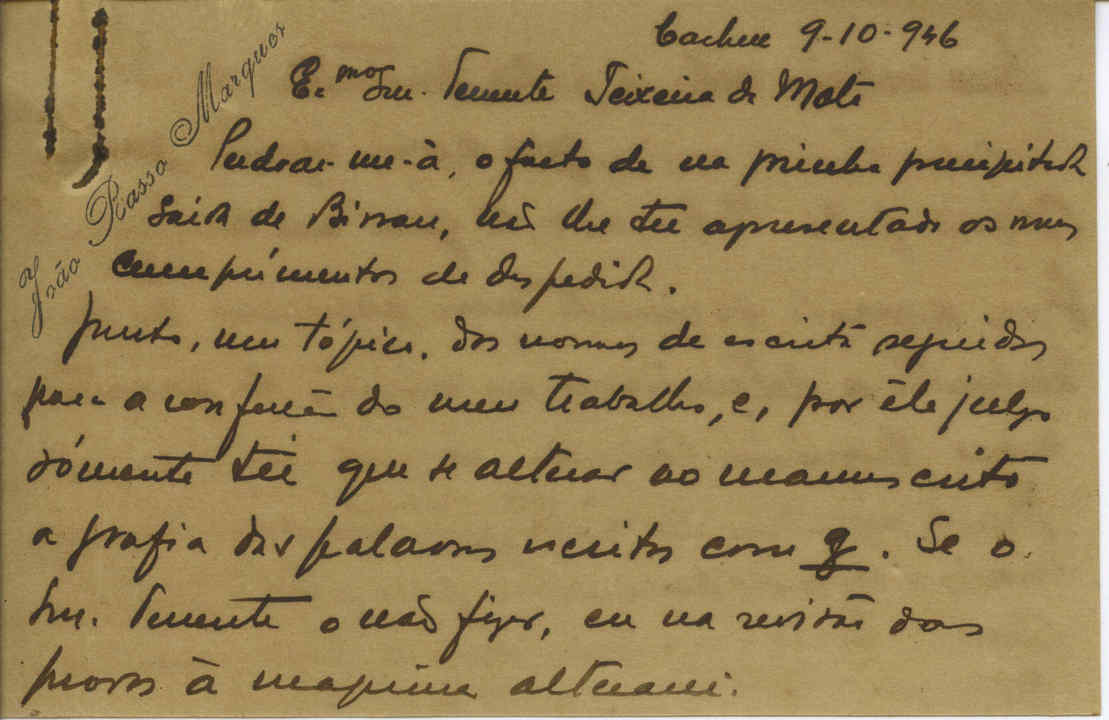 João Basso Marques
Cacheu 9-10-946
Exmo Snr. Tenente Teixeira da Mota
Perdoar-me-à, o facto de na minha precipitada
saída de Bissau, não lhe ter apresentado os meus
cumprimentos de despedida.
Junto, um tópico, das normas de escrita seguidas
para a confecção do meu trabalho, e, por êle julgo
sómente ter que se alterar no manuscrito
a grafia das palavras escritas com q. Se o
Snr. Tenente o não fizer, eu na revisão das
provas à maquina alterarei.